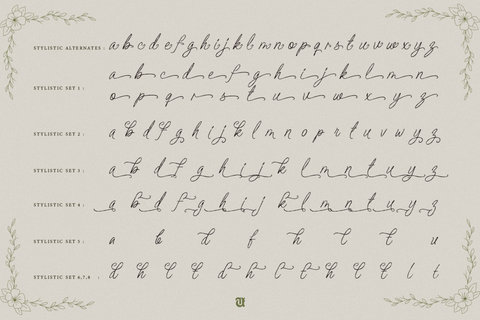 STYLISTIC ALTERNATES : a b c d e f g h i j k l m n o p q r s t u v w x y z
a b c d e f g h i j k l m n
STYLISTIC SET 1 :
o p q r s t u v w x y z
STYLISTIC SET 2 : a b d f g h i j k l m n o p r t u v w y z
STYLISTIC SET 3 : a b d f g h i j k l m n t u y z
STYLISTIC SET 4 : a b d f g h i j k l m n t u y z
STYLISTIC SET 5 : a b d f h l t u
STYLISTIC SET 6,7,8 :